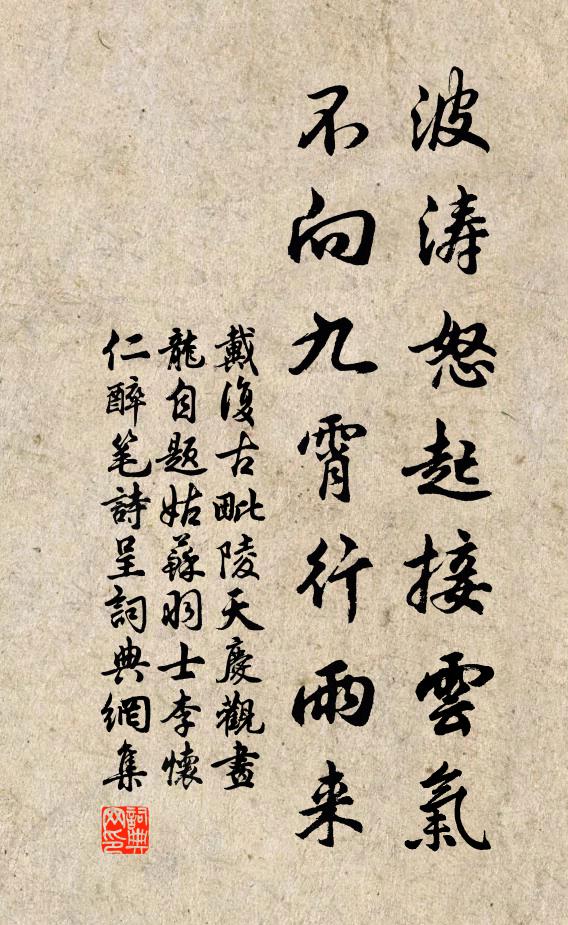 波涛怒起接雲氣
不向九霄行雨来
戴復古毗陵天慶觀畫
龍自题姑蘇羽士李懷
仁醉笔詩呈詞典網集
詞典网印